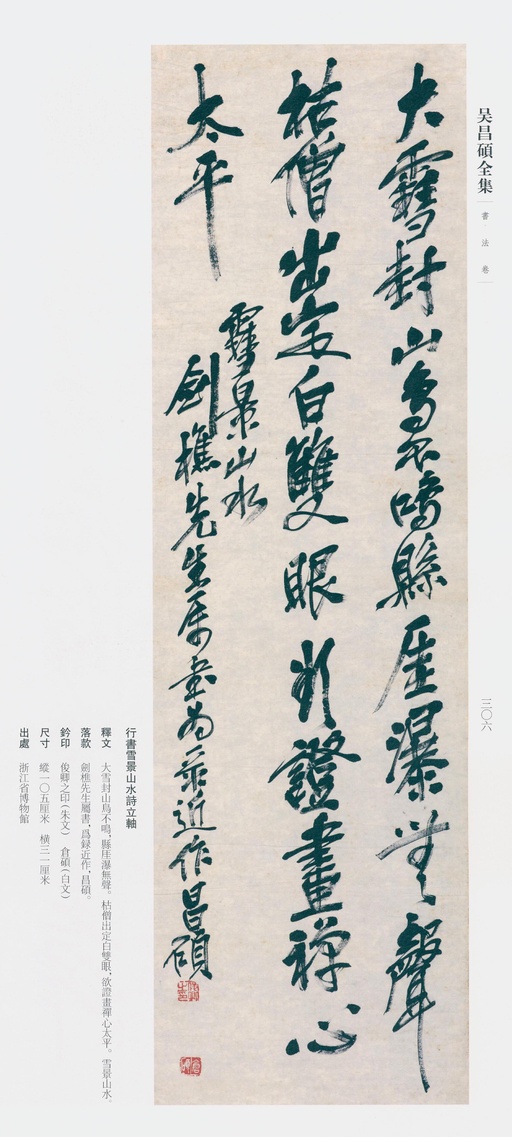 吴昌碩全集
書法卷
三〇六
大雪封山鳥不鳴縣崖瀑無聲
枯僧出定白雙眼欲證畫禪心
太平
雪景山水
劍樵先生属書為录近作昌碩
行書雪景山水詩立軸
釋文 大雪封山鳥不鳴,縣崖瀑無聲。枯僧出定白雙眼,欲證畫禪心太平。雪景山水。
落款 劍樵先生屬書,爲録近作,昌碩。
鈐印 俊卿之印(朱文) 倉碩(白文)
尺寸 縱一〇五厘米 横三一厘米
出處 浙江省博物館